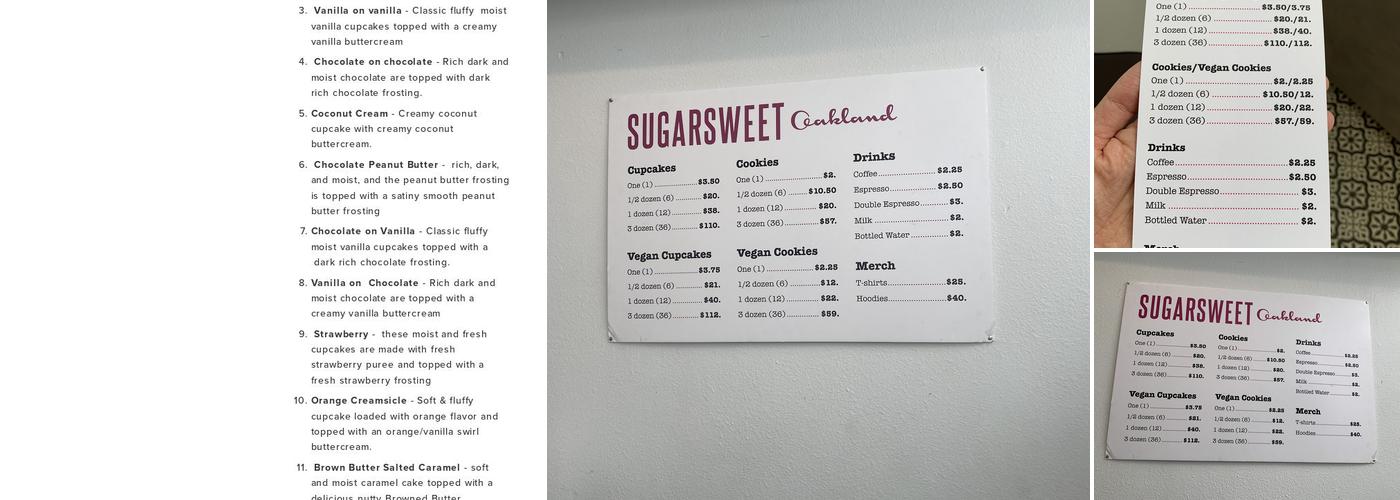 3. Vanilla on vanilla - Classic fluffy moist
vanilla cupcakes topped with a creamy
vanilla buttercream
4. Chocolate on chocolate - Rich dark and
moist chocolate are topped with dark
rich chocolate frosting.
5. Coconut Cream - Creamy coconut
cupcake with creamy coconut
buttercream.
6. Chocolate Peanut Butter - rich, dark,
and moist, and the peanut butter frosting
is topped with a satiny smooth peanut
butter frosting
7. Chocolate on Vanilla - Classic fluffy
moist vanilla cupcakes topped with a
dark rich chocolate frosting.
8. Vanilla on Chocolate - Rich dark and
moist chocolate are topped with a
creamy vanilla buttercream
9. Strawberry - these moist and fresh
cupcakes are made with fresh
strawberry puree and topped with a
fresh strawberry frosting
10. Orange Creamsicle - Soft & fluffy
cupcake loaded with orange flavor and
topped with an orange/vanilla swirl
buttercream.
11. Brown Butter Salted Caramel - soft
and moist caramel cake topped with a
delicious nutty Browned Butter
SUGARSWEET Oakland
Cupcakes
One (1) $3.50
1/2 dozen (6) $20.
1 dozen (12) $38.
3 dozen (36) $110.
Vegan Cupcakes
One (1) $3.75
1/2 dozen (6) $21.
1 dozen (12) $40.
3 dozen (36) $112.
Cookies
One (1) $2.
1/2 dozen (6) $10.50
1 dozen (12) $20.
3 dozen (36) $57.
Vegan Cookies
One (1) $2.25
1/2 dozen (6) $12.
1 dozen (12) $22.
3 dozen (36) $59.
Drinks
Coffee $2.25
Espresso $2.50
Double Espresso $3.
Milk $2.
Bottled Water $2.
Merch
T-shirts $25.
Hoodies $40.
One (1) $3.50/3.75
1/2 dozen (6) $20./21.
1 dozen (12) $38./40.
3 dozen (36) $110./112.
Cookies/Vegan Cookies
One (1) $2./2.25
1/2 dozen (6) $10.50/12.
1 dozen (12) $20./22.
3 dozen (36) $57./59.
Drinks
Coffee $2.25
Espresso $2.50
Double Espresso $3.
Milk $2.
Bottled Water $2.
SUGARSWEET Oakland
Cupcakes
One (1) $3.50
1/2 dozen (6) $20.
1 dozen (12) $38.
3 dozen (36) $110.
Vegan Cupcakes
One (1) $3.75
1/2 dozen (6) $21.
1 dozen (12) $40.
3 dozen (36) $112.
Cookies
One (1) $2.
1/2 dozen (6) $10.50
1 dozen (12) $20.
3 dozen (36) $57.
Vegan Cookies
One (1) $2.25
1/2 dozen (6) $12.
1 dozen (12) $22.
3 dozen (36) $59.
Drinks
Coffee $2.25
Espresso $2.50
Double Espresso $3.
Milk $2.
Bottled Water $2.
Merch
T-shirts $25.
Hoodies $40.